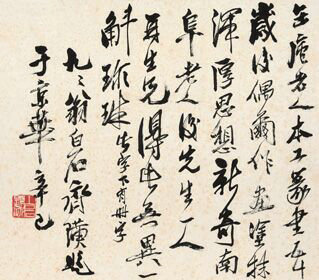 缶庐老人本工篆書五十
歲後偶爾作畫塗抹
渾厚思想新奇南
阜老人後先生一人
再生兄得此無異一
斛珍珠 生字下有此字
九二翁白石齊璜題
于京華 辛巳